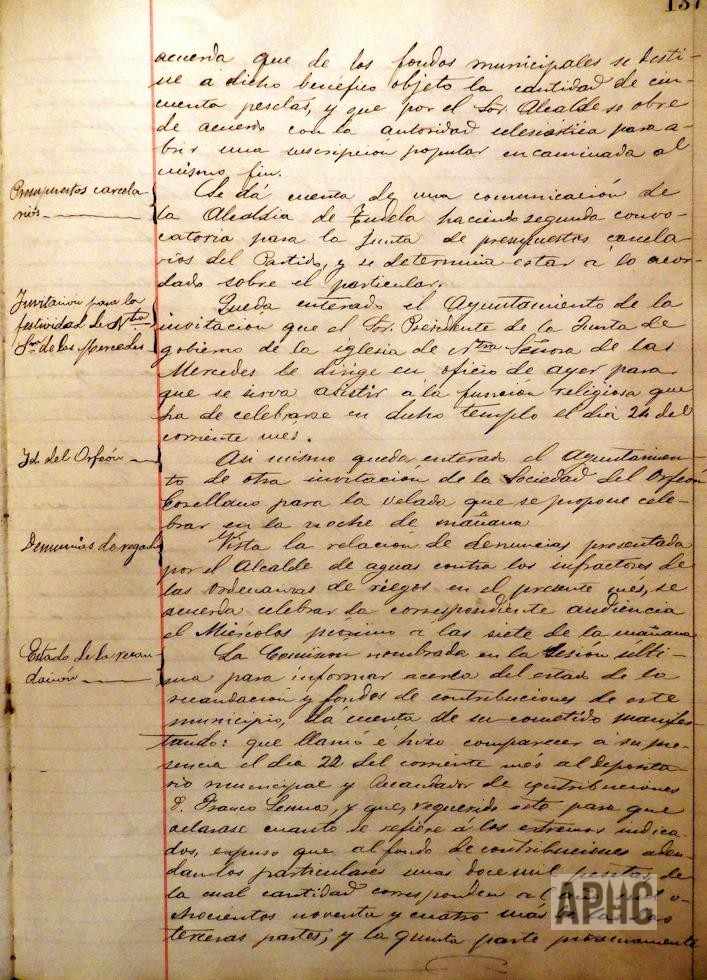 137
acuerda que de los fondos municipales se desti-
ne á dicho benéfico objeto la cantidad de cin-
cuenta pesetas, y que por el Sor. Alcalde se obre
de acuerdo con la autoridad eclesiástica para a-
brir una suscripción popular encaminada al
mismo fin.
Presupuestos carcela-
rios.
Se dá cuenta de una comunicación de
la Alcaldia de Tudela haciendo segunda convo-
catoria para la Junta de presupuestos carcela-
rios del Partido, y se determina estar á lo acor-
dado sobre el particular.
Invitacion para la
festividad de Ntra
Sra de las Mercedes
Queda enterado el Ayuntamiento de la
invitación que el Sor. Presidente de la Junta de
gobierno de la iglesia de Ntra Señora de las
Mercedes le dirige en oficio de ayer para
que se sirva asistir á la función religiosa que
ha de celebrarse en dicho templo el dia 24 del
corriente mes.
Id. del Orfeón
Asi mismo queda enterado el Ayuntamien-
to de otra invitación de la Sociedad del Orfeón
Corellano para la velada que se propone cele-
brar en la noche de mañana
Denuncias de regadío
Vista la relación de denuncias presentada
por el Alcalde de aguas contra los infractores de
las Ordenanzas de riegos en el presente més, se
acuerda celebrar la correspondiente audiencia
el Miércoles próximo á las siete de la mañana
Estado de la recau-
dación
La Comision nombrada en la Sesión ulti-
ma para informar acerca del estado de la
recaudación y fondos de contribuciones de este
municipio, dá cuenta de su cometido manifes-
tando: que llamó é hizo comparecer á su pre-
sencia el dia 22 del corriente mes al deposita-
rio municipal y Recaudador de contribuciones
D. Franco y que, requerido este para que
aclarase cuanto se refiere á los extremos indica-
dos, expuso que al fondo de contribuciones adeu-
dan los particulares unas doce mil pesetas, de
la cual cantidad corresponden al
chocientos noventa y cuatro más las dos
terceras partes; y la quinta parte proximamente
APHC